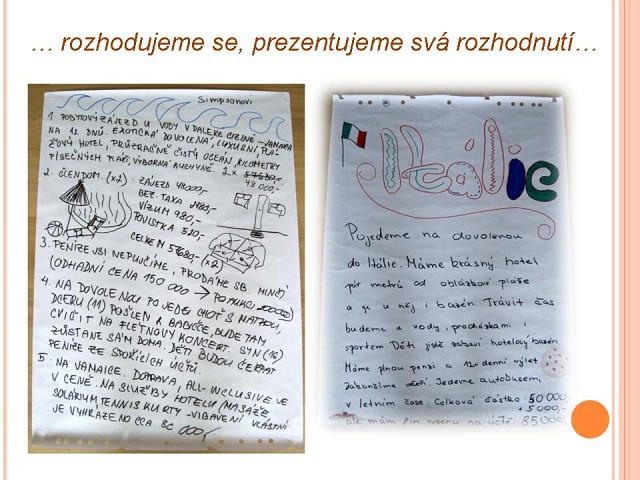 … rozhodujeme se, prezentujeme svá rozhodnutí…
Simpsonovi
1. POBYTOVÝ ZÁJEZD U VODY V DALEKÉ CIZINĚ - JAMAJKA
NA 12 DNŮ. EXOTICKÁ DOVOLENÁ, LUXUSNÍ, PLÁ-
ŽOVÝ HOTEL, PRŮZRAČNĚ ČISTÝ OCEÁN, KILOMETRY
PÍSEČNÝCH PLÁŽÍ, VÝBORNÁ KUCHYNĚ. 2x 57680,-
48 000,-
2. ČLENDOM. (x2)
ZÁJEZD 48000,-
BEZ. TAXA
VÍZUM 980,-
POJISTKA 520,-
CELKEM 57680,- (x2)
3. PENÍZE JSI NEPŮJČÍME, PRODÁME SB. MINCÍ
(ODHADNÍ CENA 150 000 → PO AUKCI 200000)
4. NA DOVOLENOU POJEDE CHOŤ S MATKOU,
DCERU (11) POŠLEM K BABIČCE, BUDE TAM
CVIČIT NA FLÉTNOVÝ KONCERT. SYN (16)
ZŮSTANE SÁM DOMA. DĚTI BUDOU ČERPAT
PENÍZE ZE SPOŘÍCÍCH ÚČTŮ.
5. NA JAMAICE. DOPRAVA, ALL-INCLUSIVE JE
V CENĚ. NA SLUŽBY HOTELU (MASÁŽE
SOLÁRIUM, TENNIS KURTY - VYBAVENÍ VLASTNÍ
JE VYHRAZENO CCA 80 000,-
Itálie
Pojedeme na dovolenou
do Itálie. Máme krásný hotel
pár metrů od oblázkové pláže
a je u něj i bazén. Trávit čas
budeme u vody, procházkami i
sportem. Děti jistě zabaví hotelový bazén.
Máme plnou penzi a denní výlet
zakončíme Jedeme autobusem,
v letním čase. Celková částka: 50 000,-
+ 5000,-
ale mám fin. na účtě 85 000